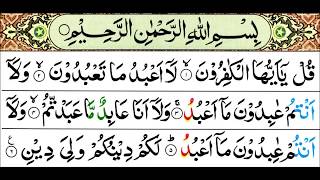 بِسْمِ اللّٰهِ الرَّحْمٰنِ الرَّحِيْمِ
قُلْ يٰٓاَيُّهَا الْكٰفِرُوْنَ ۙ‏﴿۱﴾ لَاۤ اَعْبُدُ مَا تَعْبُدُوْنَ ۙ‏﴿۲﴾ وَلَاۤ
اَنْتُمْ عٰبِدُوْنَ مَاۤ اَعْبُدُ ۚ‏﴿۳﴾ وَلَاۤ اَنَا عَابِدٌ مَّا عَبَدْتُّمْ ۙ‏﴿۴﴾ وَلَاۤ
اَنْتُمْ عٰبِدُوْنَ مَاۤ اَعْبُدُ ؕ‏﴿۵﴾ لَكُمْ دِيْنُكُمْ وَلِىَ دِيْنِ ‏﴿۶﴾